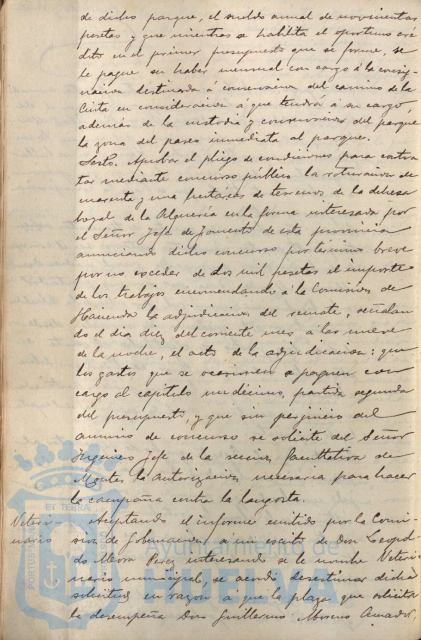 de dicho parque, el sueldo anual de novecientas
pesetas y que mientras se habilita el oportuno cré
dito en el primer presupuesto que se forme, se
le pague su haber mensual con cargo á la consig-
nación destinada á conservación del camino de la
Cinta en consideración á que tendrá á su cargo,
además de la custodia y conservación del parque
la zona del paseo inmediata al parque.
Sesto. Aprobar el pliego de condiciones para contra
tar mediante concurso público la roturación de
cuarenta y una hectáreas de terrenos de la dehesa
boyal de la Alquería en la forma interesada por
el Señor Jefe de Fomento de esta provincia
anunciando dicho concurso por término breve
por no exceder de dos mil pesetas el importe
de los trabajos encomendando á la Comisión de
Hacienda la adjudicación del remate, señalan
do el día diez del corriente mes á las nueve
de la noche, el acto de la adjudicación: que
los gastos que se ocasionen se paguen con
cargo al capítulo undécimo, partida segunda
del presupuesto y que sin perjuicio del
anuncio de concurso se solicite del Señor
Ingeniero Jefe de la sección facultativa de
Montes, la autorización necesaria para hacer
la campaña contra la langosta.
Veteri-
nario
Aceptando el informe emitido por la Comi-
sión de Gobernación á un escrito de Don Leopol-
do Mora Perez interesando se le nombre Veteri-
nario municipal, se acordó desestimar dicha
solicitud en razón á que la plaza que solicita
la desempeña Don Guillermo Moreno Amador,
Ayuntamiento de
HUELVA